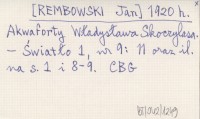 [REMBOWSKI Jan] 1920 h.
Akwaforty Władysława Skoczylasa.
— Światło 1, nr 9: 11 oraz il.
na s. 1 i 8-9. CBG